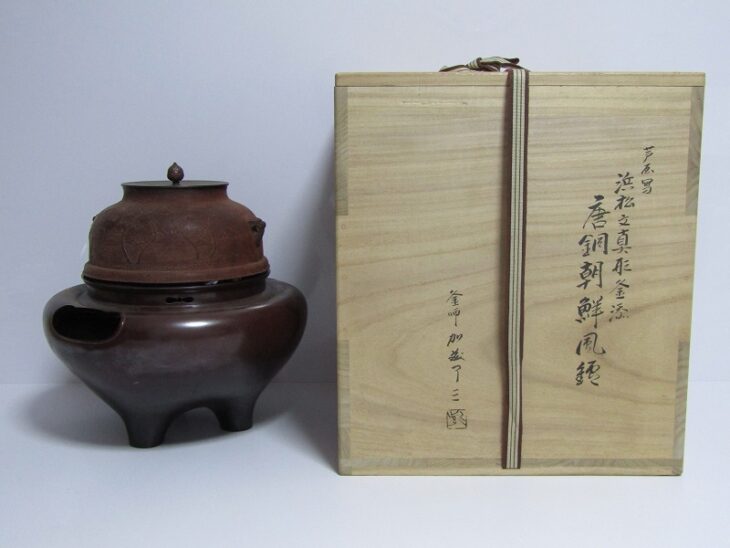 芦屋写
浜松之真形釜添
唐銅朝鮮風鑪
釜師 加藤了三